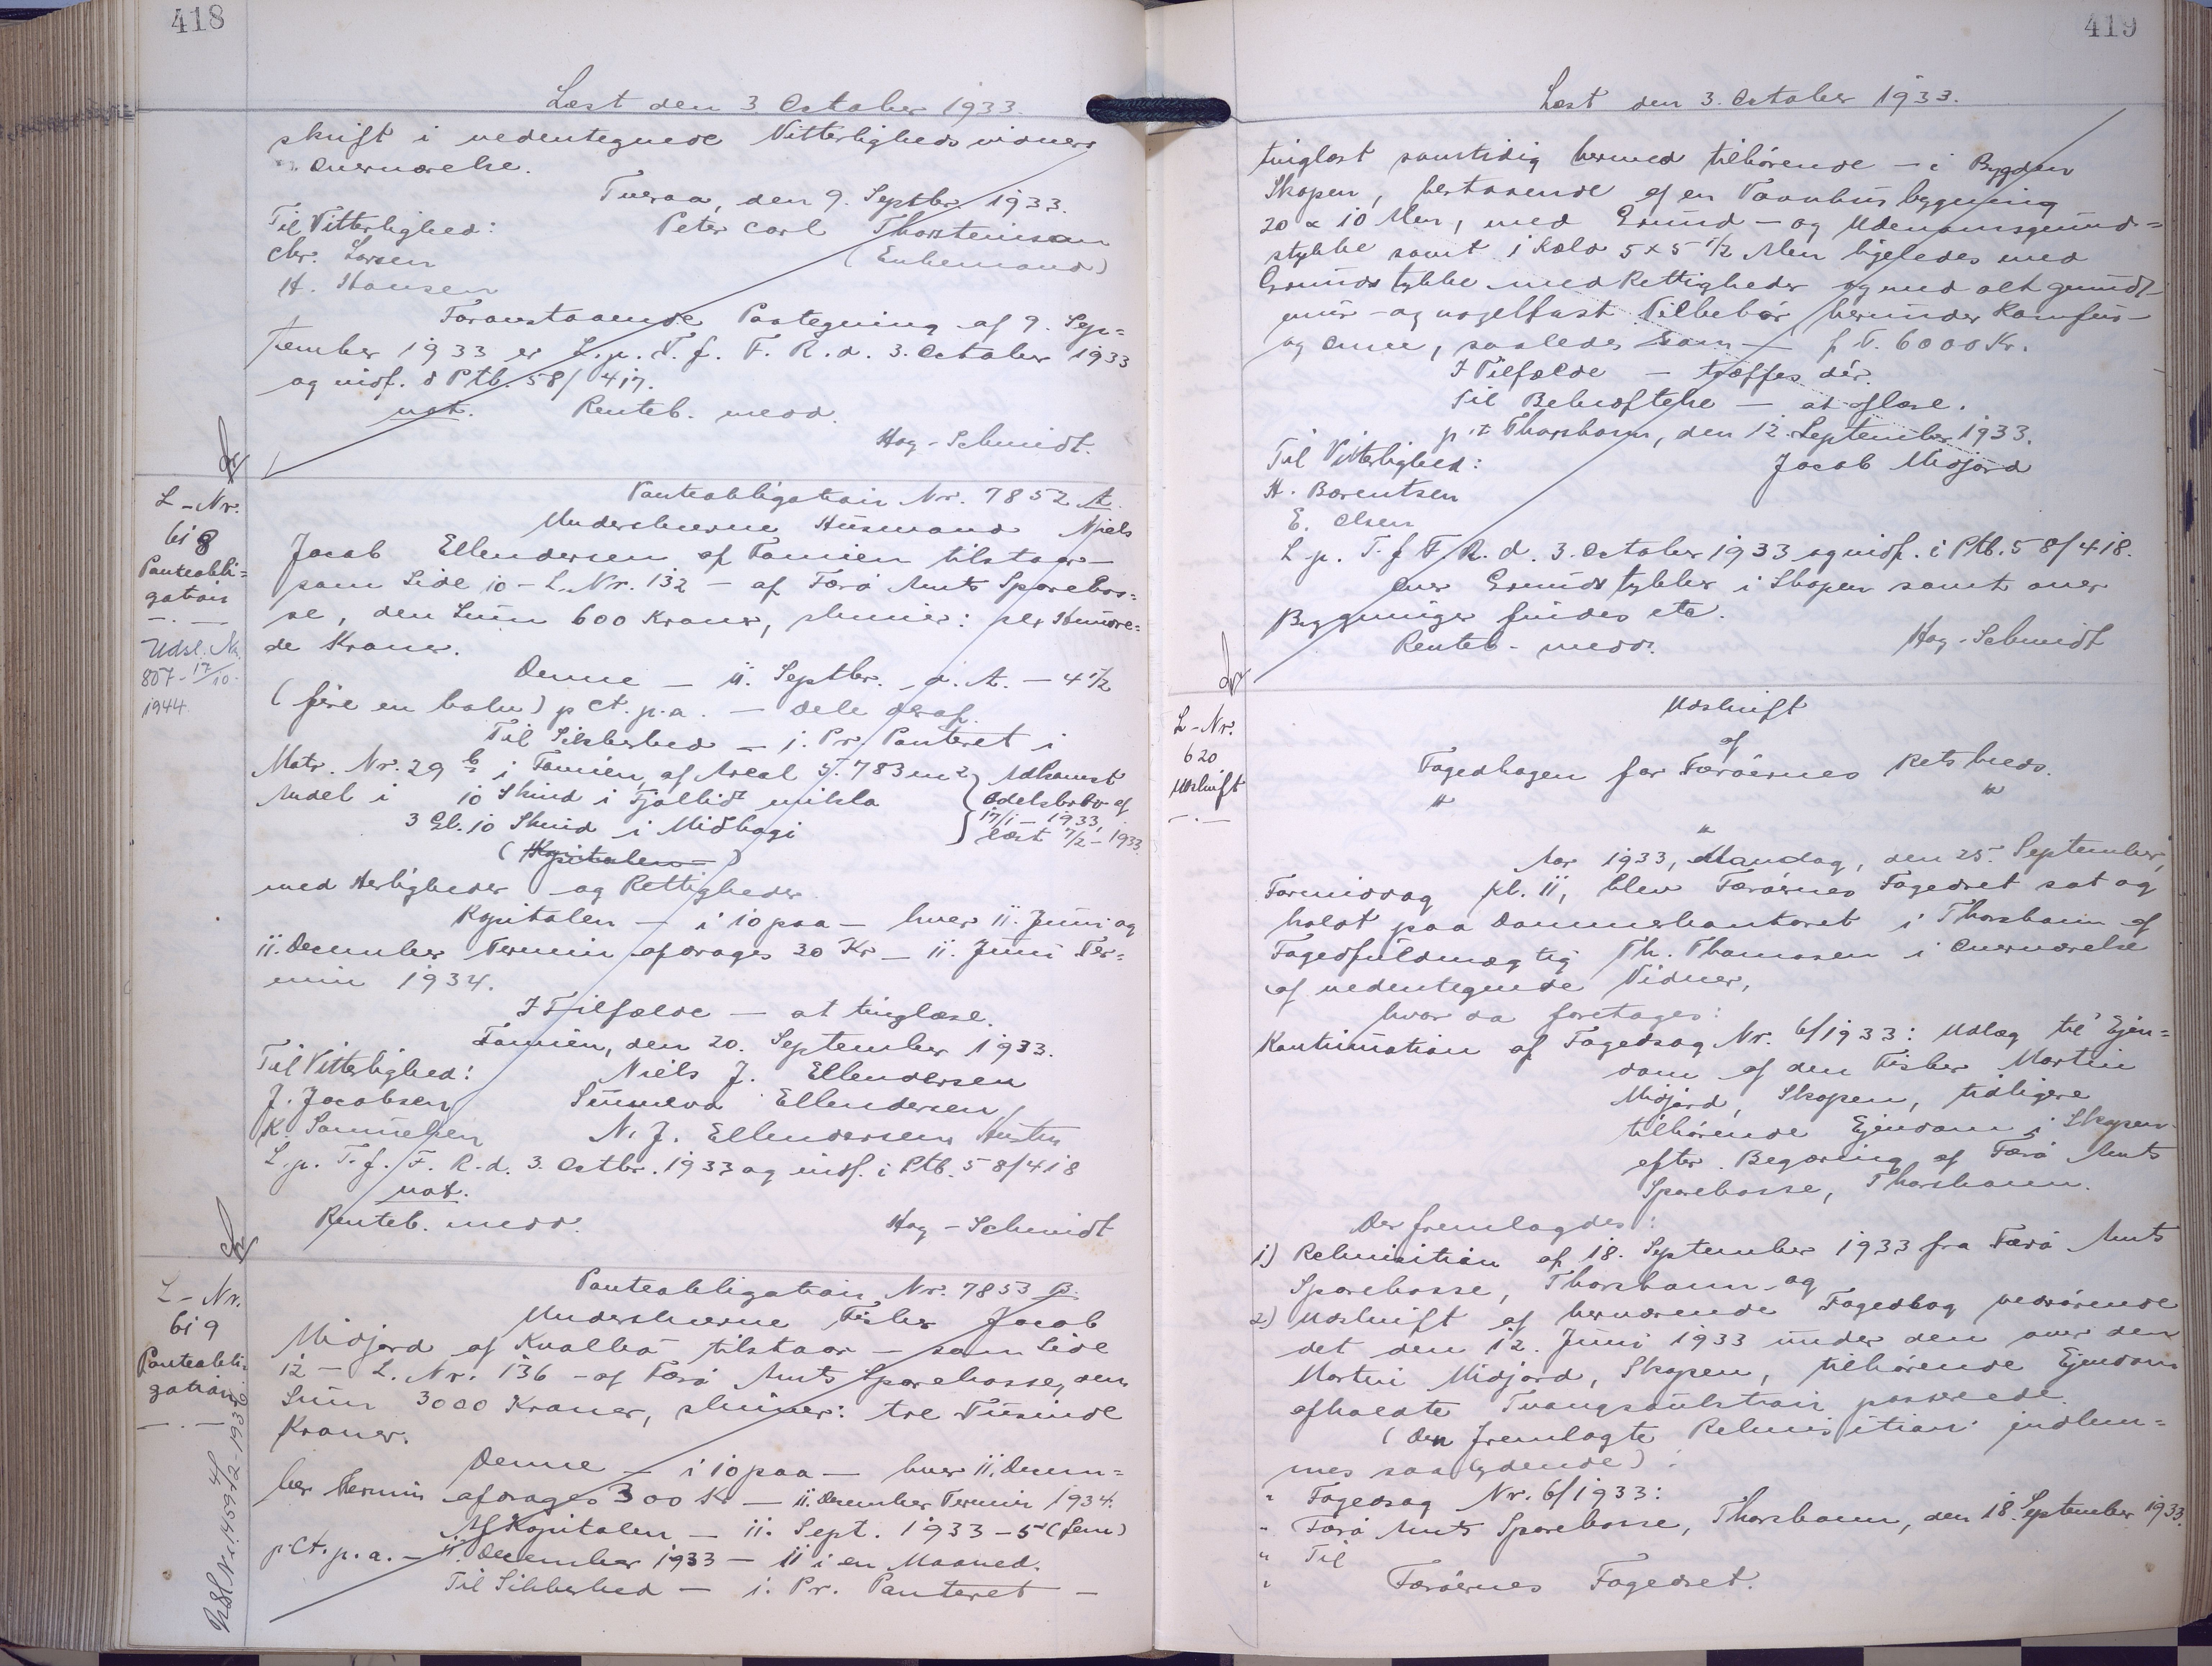 418
Læst den 3 October 1933.
skrift i nedentegnede Vitterlighedsvidners
Overværelse.
Tveraa, den 9. Septbr. 1933.
Til Vitterlighed: Peter Carl Thorsteinsson
Chr. Larsen (Enkemand)
H. Hansen
Foranstaaende Paategning af 9. Sep=
tember 1933 er L. p. T. f. F. R. d. 3. October 1933
og indf. i Ptb. 58/417.
not. Renteb. medd.
Hag-Schmidt.
L-Nr.
618
Panteobli=
gation
- . -
Udsl. Nr.
807 - 17/10-
1944
Panteobligation Nr. 7852 A.
Underskrevne Husmand Niels
Jacob Ellendersen af Famien tilstaar -
som Side 10 - L. Nr. 132 - af Færø Amts Sparekas=
se, den Sum 600 Kroner, skriver: sex Hundre=
de Kroner.
Denne - 11. Septbr. d. A. - 4 1/2
(fire en halv) p Ct. p. a. - dele deraf.
Til Sikkerhed - j. Pr. Panteret i
Matr. Nr. 29 b i Famien, af Areal 5.783 m2 } Adkomst
Andel i 10 Skind i Fjallid mikla } Odelsbrev af
3 Gl. 10 Skind i Midhagi } 17/1 - 1933, læst 7/2 - 1933.
(Kapitalen -)
med Herligheder og Rettigheder
Kapitalen - i 10 paa - hver 11. Juni og
11. December Termin afdrages 30 Kr - 11. Juni Ter=
min 1934.
I Tilfælde - at tinglæse.
Famien, den 20. September 1933.
Til Vitterlighed: Niels J. Ellendersen
J. Jacobsen Sunneva Ellendersen /
K. Samuelsen N. J. Ellendersens Hustru
L. p. T. f. F. R. d. 3. Octbr. 1933 og indf. i Ptb. 58/418
not.
Renteb. medd. Hag-Schmidt
L-Nr.
619
Panteobli-
gation
- . -
Udsl Nr. 1459 4/2-1936
Panteobligation Nr. 7853 B.
Underskrevne Fisker Jacob
Midjord af Kvalbø tilstaar - som Side
12 - L. Nr. 136 - af Færø Amts Sparekasse, den
Sum 3000 Kroner, skriver: tre Tusinde
Kroner.
Denne - i 10 paa - hver 11. Decem=
ber Termin afdrages 300 Kr - 11. December Termin 1934.
Af Kapitalen - 11. Sept. 1933 - 5 (fem)
p. Ct. p. a. - 11. December 1933 - 11 i en Maaned.
Til Sikkerhed - i. Pr. Panteret -
419
Læst den 3. October 1933.
tinglæst samtidig hermed tilhørende - i Bygden
Skopen, bestaaende af en Vaanhusbygning
20 x 10 Alen, med Grund - og Udenomsgrund=
stykke samt i Kæld 5 x 5 1/2 Alen ligeledes med
Grundstykke med Rettigheder og med alt grund-
mur - og nagelfast Tilbehør herunder Komfur-
og Ovne, saaledes som - f. T. 6000 Kr.
I Tilfælde - træffes dér.
Til Bekræftelse - at aflæse.
p. t Thorshavn, den 12. September 1933.
Til Vitterlighed: Jacob Midjord
H. Barentsen
E. Olsen
L. p. T. f. F. R. d. 3. October 1933 og indf. i Ptb. 58/418.
Over Grundstykker i Skopen samt over
Bygninger findes etc.
Renteb - medd. Hag-Schmidt
L-Nr.
620
Udskrift
- . -
Udskrift
af
Fogedbogen for Færøernes Retskreds.
" " "
Aar 1933, Mandag, den 25. September,
Formiddag Kl. 11, blev Færøernes Fogedret sat og
holdt paa Dommerkontoret i Thorshavn af
Fogedfuldmægtig Th. Thomasen i Overværelse
af nedentegnede Vidner,
hvor da foretages:
Kontinuation af Fogedsag Nr. 6/1933: Udlæg til Ejen=
dom af den Fisker Martin
Midjord, Skopen, tidligere
tilhørende Ejendom i Skopen
efter Begæring af Færø Amts
Sparekasse, Thorshavn.
Der fremlagdes:
1) Rekvisition af 18. September 1933 fra Færø Amts
Sparekasse, Thorshavn og
2) Udskrift af herværende Fogedbog vedrørende
det den 12. Juni 1933 under den over den
Martin Midjord, Skopen, tilhørende Ejendom
afholdte Tvangsauktion passerede.
(Den fremlagte Rekvisition indlem=
mes saalydende):
" Fogedsag Nr. 6/1933:
" Færø Amts Sparekasse, Thorshavn, den 18. September 1933.
" Til
" Færøernes Fogedret.